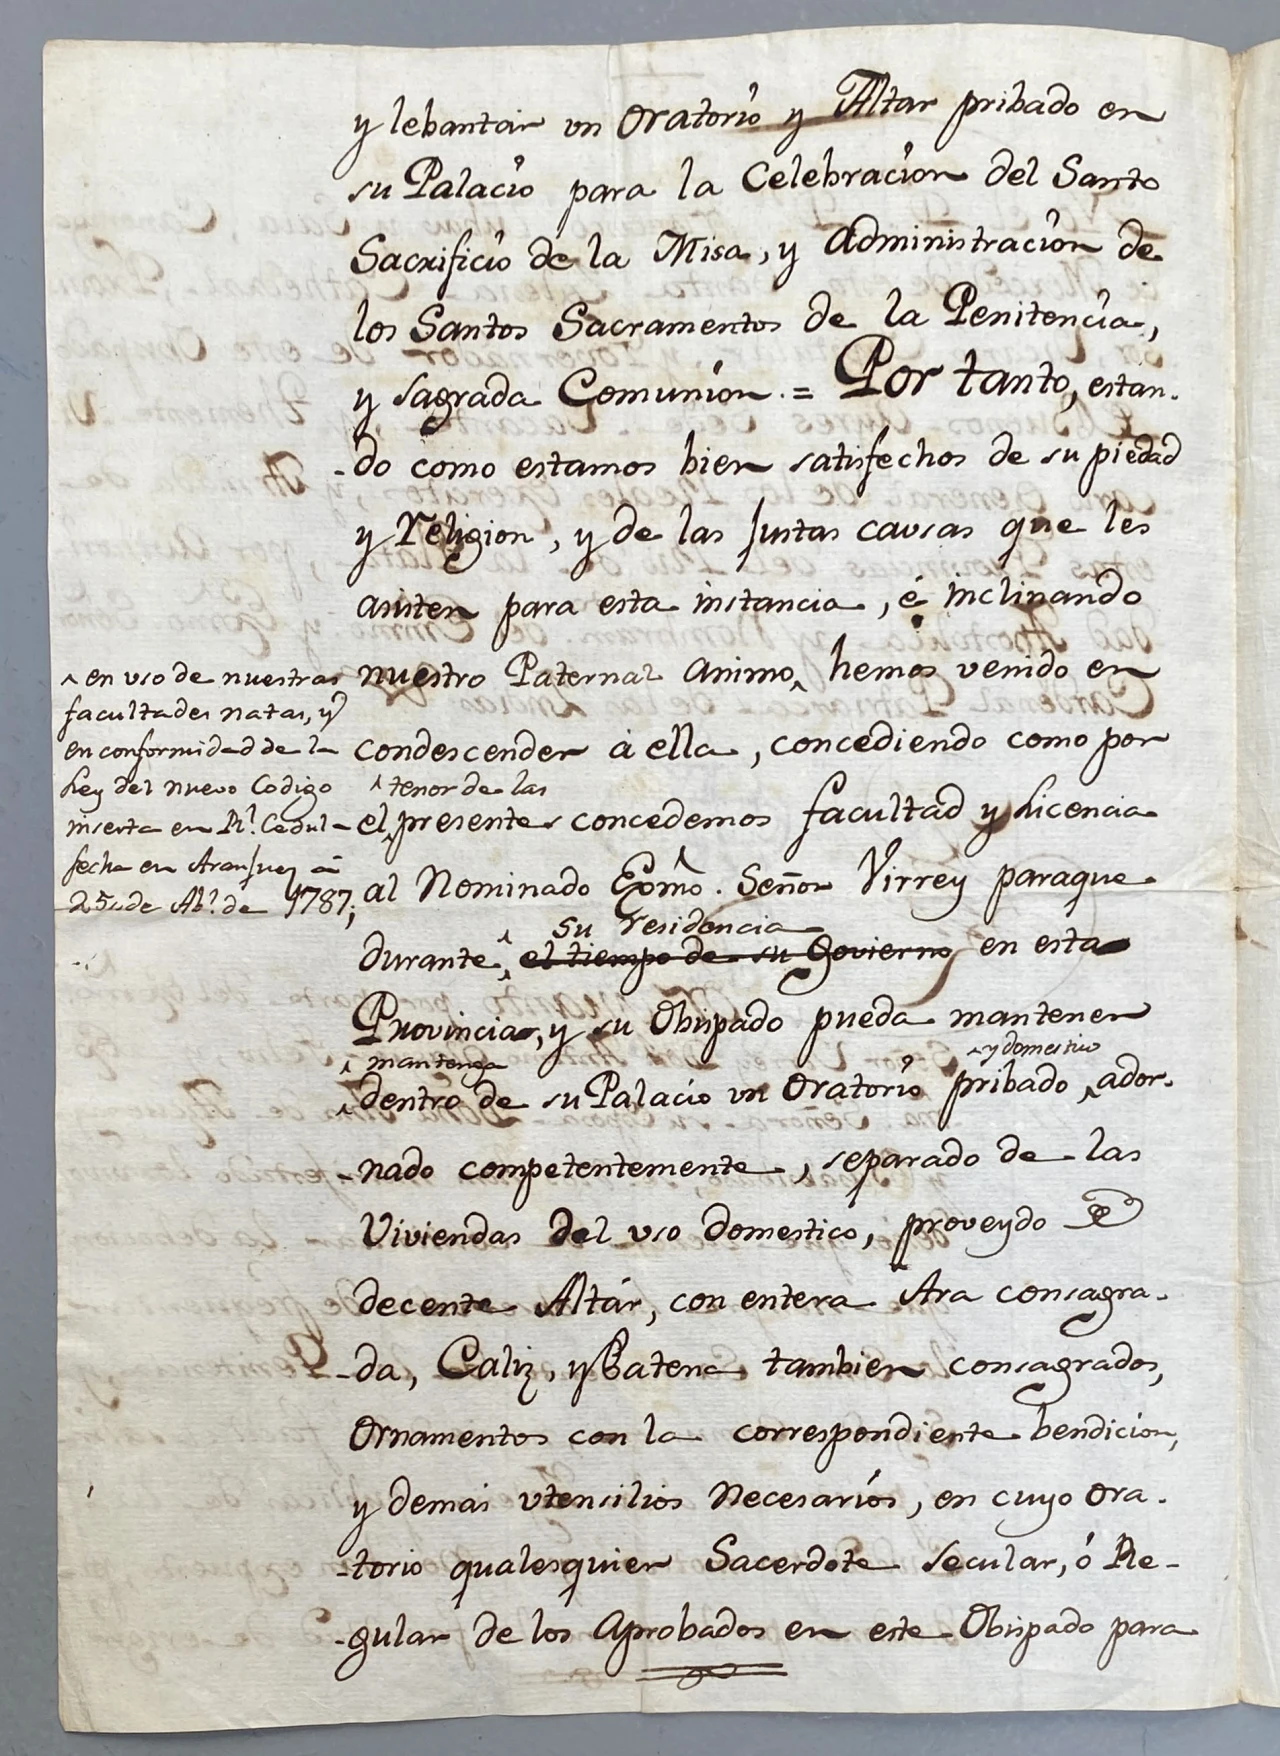 y lebantar un Oratorio y Altar pribado en
su Palacio para la Celebracion del Santo
Sacrificio de la Misa, y administracion de
los Santos Sacramentos de la Penitencia,
y sagrada Comunion. = Por tanto, estan-
-do como estamos bien satisfechos de su piedad
y religion, y de las justas causas que les
asisten para esta instancia, é inclinando
nuestro Paternal animo ^ hemos venido en
^ en uso de nuestras
facultades natas, y
en conformidad de la
Ley del nuevo Codigo
inserta en Rl. Cedul-
fecha en Aranjuez á
25 de Abl. de 1787,
condescender á ella, concediendo como por
^ tenor de las
el ^ presentes concedemos facultad y Licencia
al Nominado Exmo. Señor Virrey paraque
su residencia
durante ^ el tiempo de su Govierno en esta
Provincia, y su Obispado pueda mantener
^ mantenga ^ y domestico
^ dentro de su Palacio un Oratorio pribado ^ ador-
-nado competentemente, separado de las
Viviendas del uso domestico, proveydo de
decente Altár, con entera Ara consagra-
-da, Caliz, y Patena tambien consagrados,
Ornamentos con la correspondiente bendicion,
y demas utensilios necesarios, en cuyo Ora-
-torio qualesquier Sacerdote secular, ó Re-
-gular de los Aprobados en este Obispado para